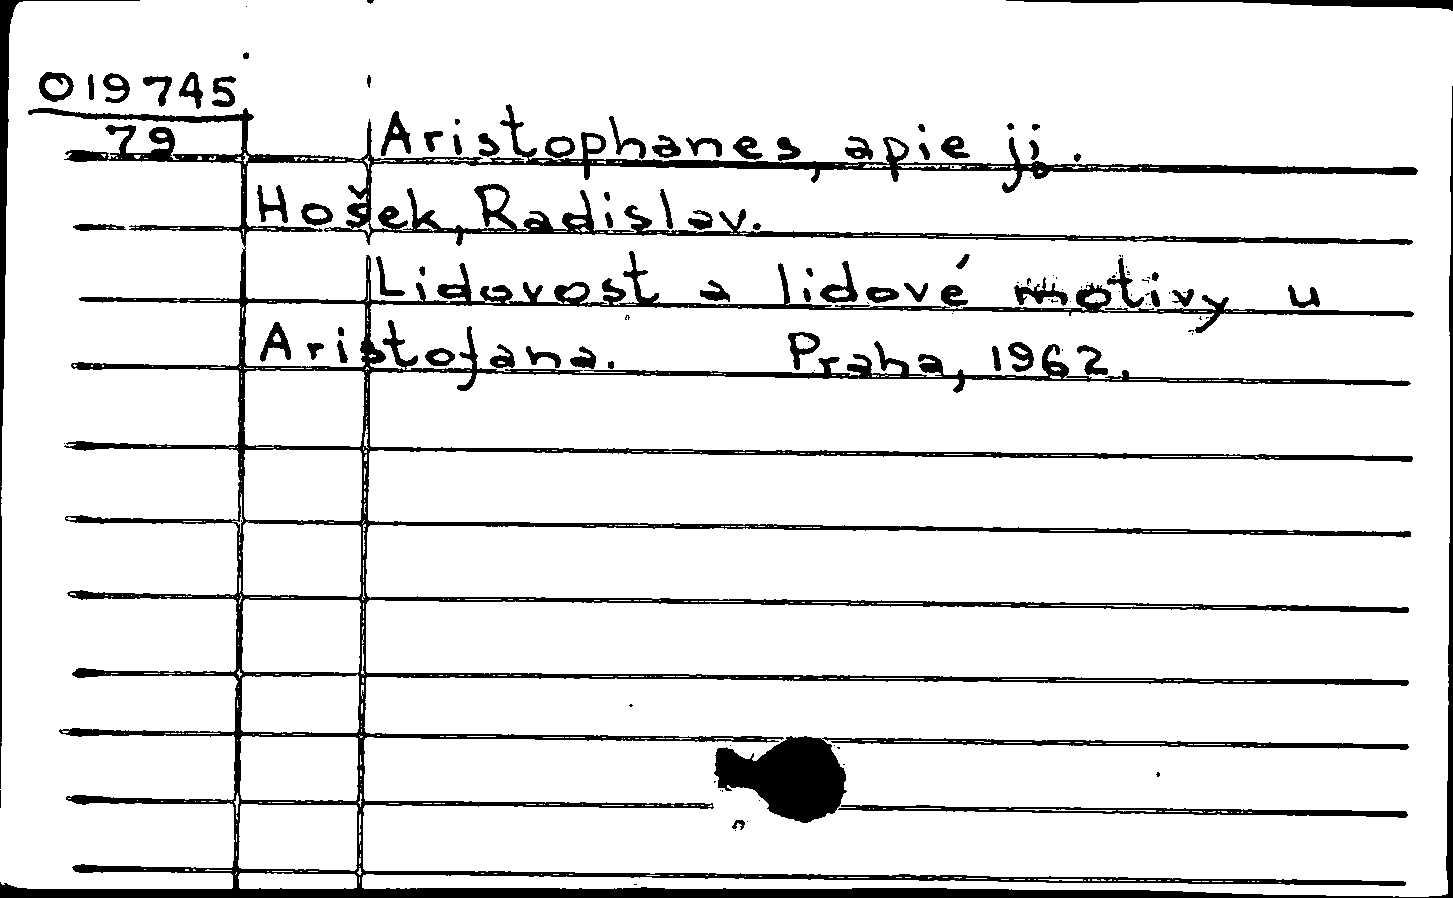 019745
79
Aristophanes, apie jį.
Hošek, Radislav.
Lidovost a lidové motivy u
Aristofana. Praha, 1962.